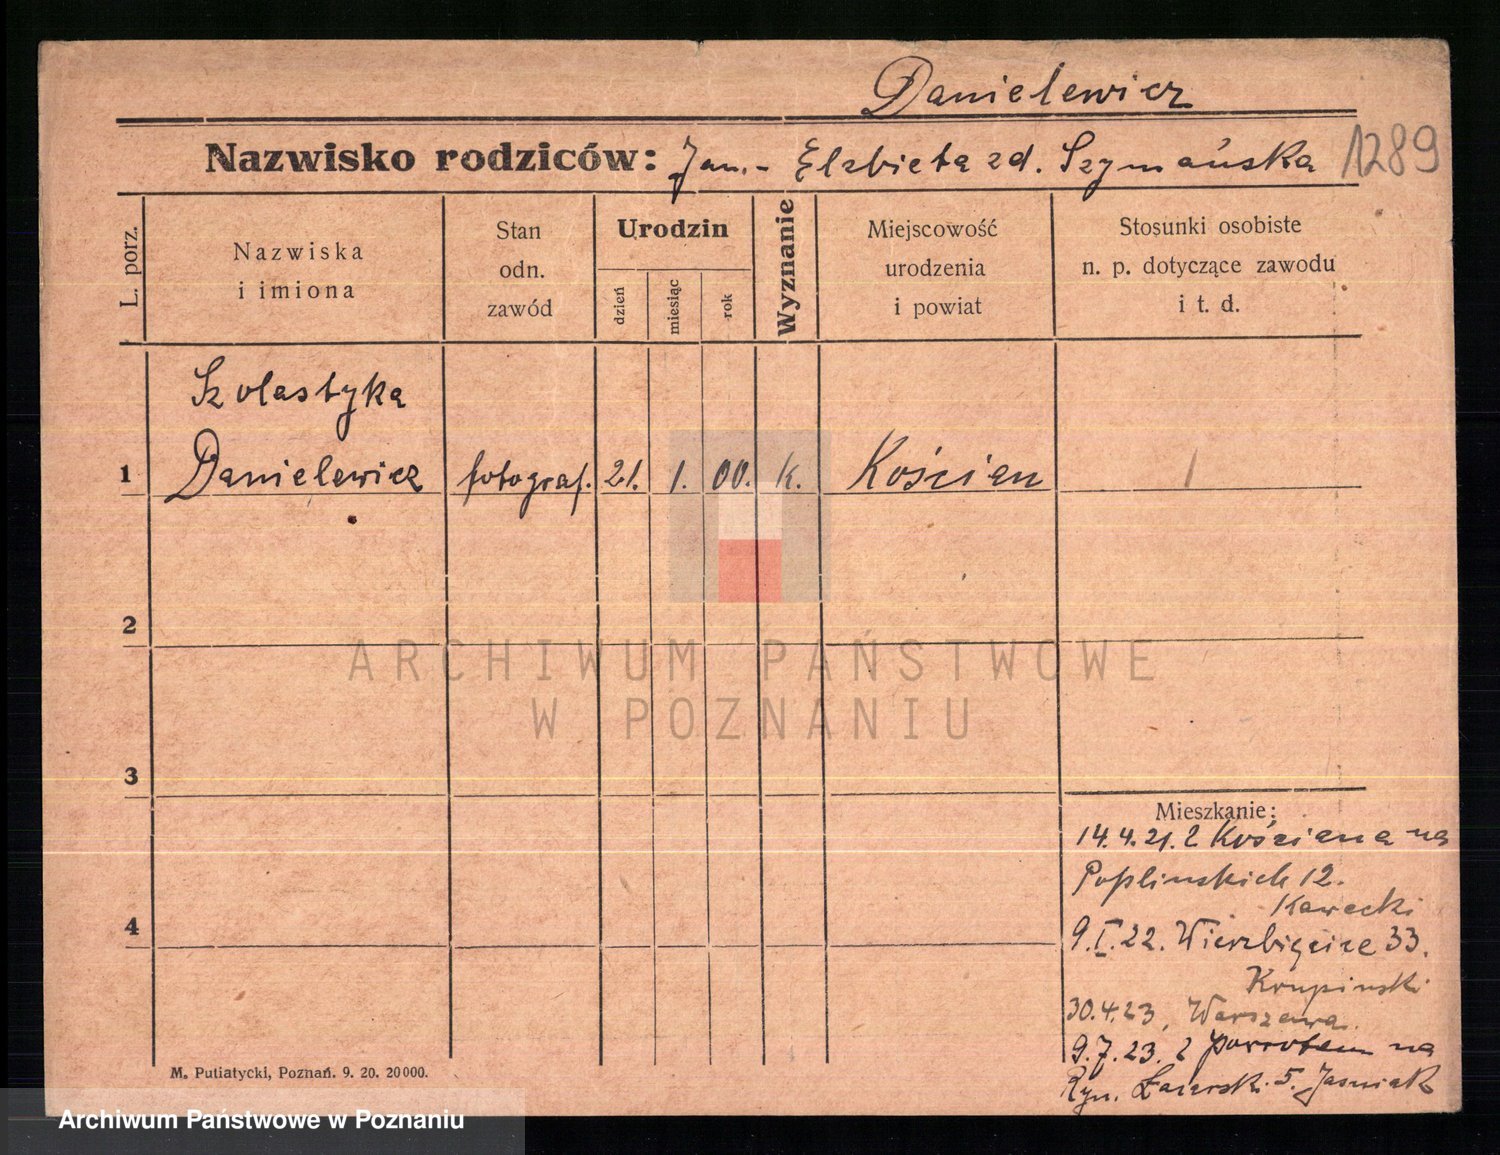 Danielewicz
Nazwisko rodziców: Jan. - Elzbieta zd. Szymańska 1289
L. porz.
Nazwiska
i imiona
Stan
odn.
zawód
Urodzin
dzień
miesiąc
rok
Wyznanie
Miejscowość
urodzenia
i powiat
Stosunki osobiste
n. p. dotyczące zawodu
i t. d.
Szolastyka
1 Danielewicz fotograf. 21. 1. 00. k. Kościan
2
3
4
Mieszkanie:
14.4.21. z Kościana na
Poplinskich 12.
Kawecki
9.I.22. Wierzbięcice 33.
Krupinski
30.4.23, Warszawa.
9.7.23. z powrotem na
Ryn. Łazarski. 5. Jasniak
M. Putiatycki, Poznań. 9. 20. 20000.
ARCHIWUM PAŃSTWOWE
W POZNANIU
Archiwum Państwowe w Poznaniu